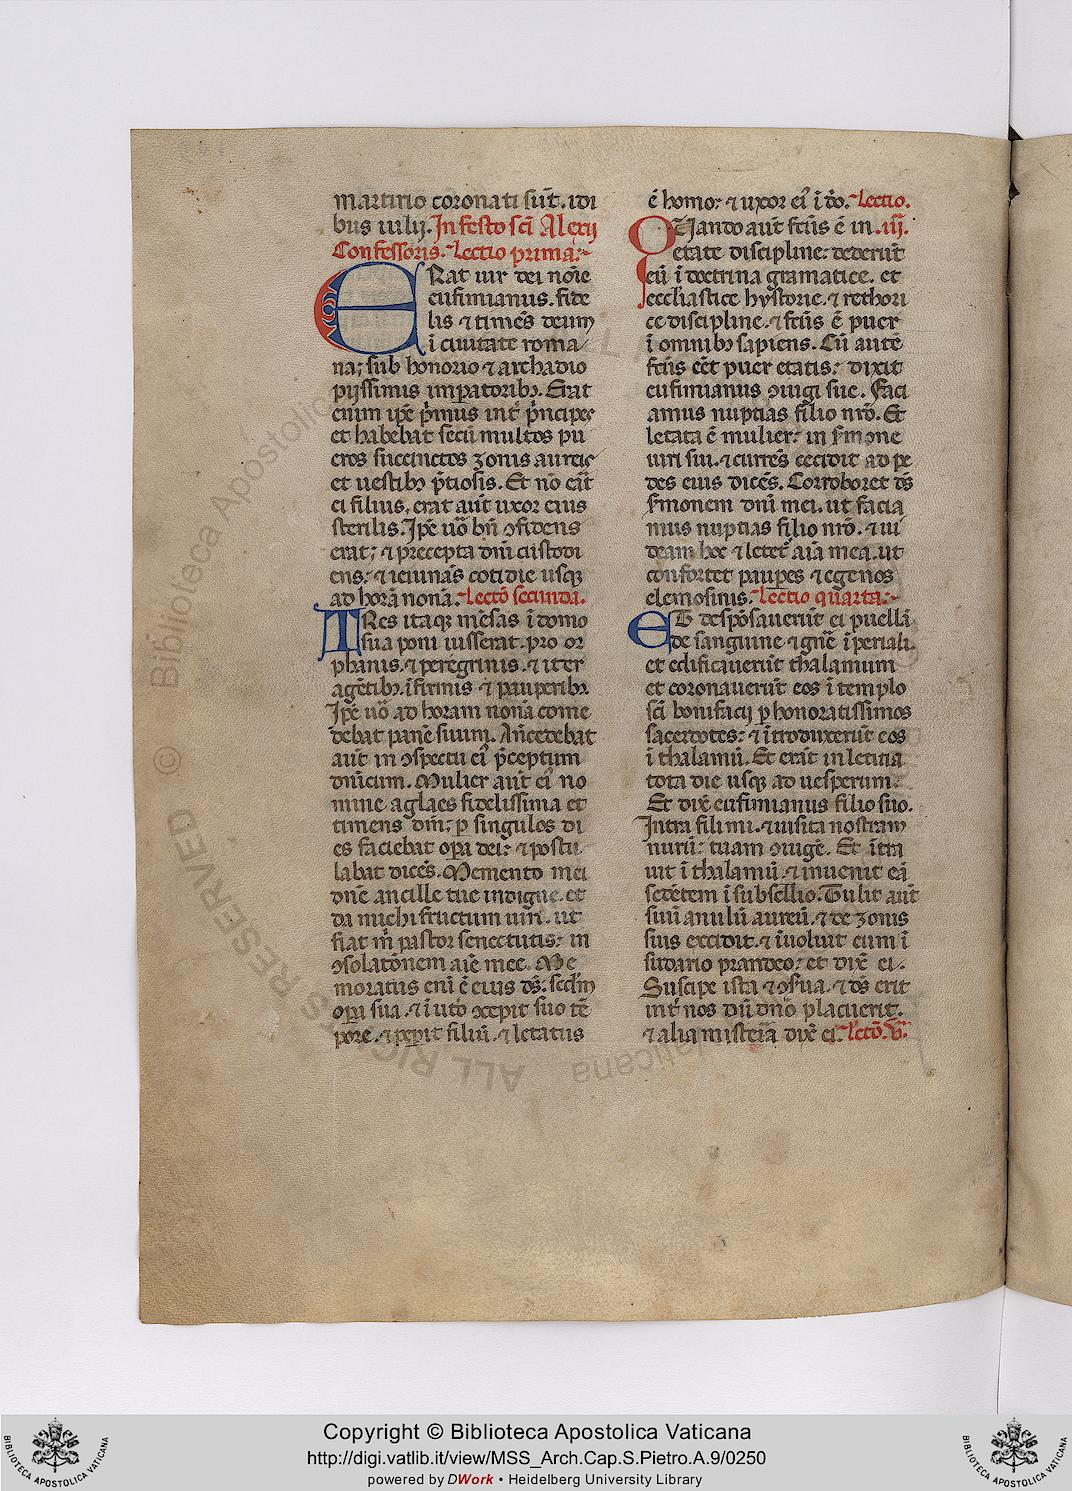 martirio coronati sūt. idi
bus iulij. In festo sc̄i Alexij
Confessoris. Lectio prima.
ERat uir dei noīe
eufimianus. fide
lis ⁊ timēs deum
ī ciuitate roma
na; sub honorio ⁊ archadio
pijssimis imp̄atoribꝫ. Erat
enim ip̄e p̄mus int̄ p̄ncipes
et habebat secū multos pu
eros succinctos zonis aureis
et uestibꝫ p̄tiosis. Et nō erāt
ei filius, erat aūt uxor eius
sterilis. Ip̄e uō bn̄ ꝯfidens
erat; ⁊ precepta dn̄i custodi
ens: ⁊ ieiunās cotidie usqꝫ
ad horā nonā. Lectō secunda.
TRes itaqꝫ mēsas ī domo
sua poni iusserat. pro or
phanis. ⁊ peregrinis. ⁊ iter
agētibꝫ. īfirmis ⁊ pauperibꝫ
Ip̄e uō ad horam nonā come
debat panē suum. Ancedebat
aūt in ꝯspectu eiꝰ p̄ceptum
dn̄icum. Mulier aūt eiꝰ no
mine aglaes fidelissima et
timens dm̄; ꝑ singulos di
es faciebat oꝑa dei: ⁊ postu
labat dicēs. Memento mei
dn̄e ancille tue indigne. et
da michi fructum uiri. ut
fiat m̄ pastor senectutis: in
ꝯsolatōnem aīe mee. Me
moratus enī ē eius dꝰ: secūm
oꝑa sua. ⁊ ī utō ꝯcepit suo tē
pore. ⁊ peꝑit filiū. ⁊ letatus
ē homo: ⁊ uxor eiꝰ ī dō. Lectio.
QUando aūt fc̄us ē in .iij.
etate discipline: dederūt
eū ī doctrina gramatice. et
eccliastice hystorie. ⁊ rethori
ce discipline. ⁊ fc̄us ē puer
ī omnibꝫ sapiens. Cū autē
fc̄us eēt puer etatis: dixit
eufimianus ꝯiugi sue. Faci
amus nuptias filio nr̄o. Et
letata ē mulier: in s̄mone
uiri sui. ⁊ currēs cecidit ad pe
des eius dicēs. Corroboret dꝰ
s̄monem dn̄i mei. ut facia
mus nuptias filio nr̄o. ⁊ ui
deam hec ⁊ letet̄ aīa mea. ut
confortet pauꝑes ⁊ egenos
elemosinis. Lectio quarta.
ET despōsauerūt ei puellā
de sanguine ⁊ gn̄e īperiali.
et edificauerūt thalamum
et coronauerūt eos ī templo
sc̄i bonifacij ꝑ honoratissimos
sacerdotes: ⁊ ītroduxerūt eos
ī thalamū. Et erāt in letitia
tota die usqꝫ ad uesperum.
Et dixit̄ eufimianus filio suo.
Intra fili mi. ⁊ uisita nostram
nurū: tuam ꝯiugē. Et ītra
uit ī thalamū. ⁊ inuenit eā
sedētem ī subsellio. Tulit aūt
suū anulū aureū. ⁊ de zonis
suis excidit. ⁊ īuoluit eum ī
sudario prandeo: et dix̄ ei.
Suscipe ista ⁊ ꝯs̄ua. ⁊ dꝰ erit
int̄ nos dū dn̄o placuerit.
⁊ alia misteīa dix̄ ei. Lectō. v̄.
Copyright © Biblioteca Apostolica Vaticana
http://digi.vatlib.it/view/MSS_Arch.Cap.S.Pietro.A.9/0250
powered by DWork • Heidelberg University Library
BIBLIOTECA APOSTOLICA VATICANA
BIBLIOTECA APOSTOLICA VATICANA